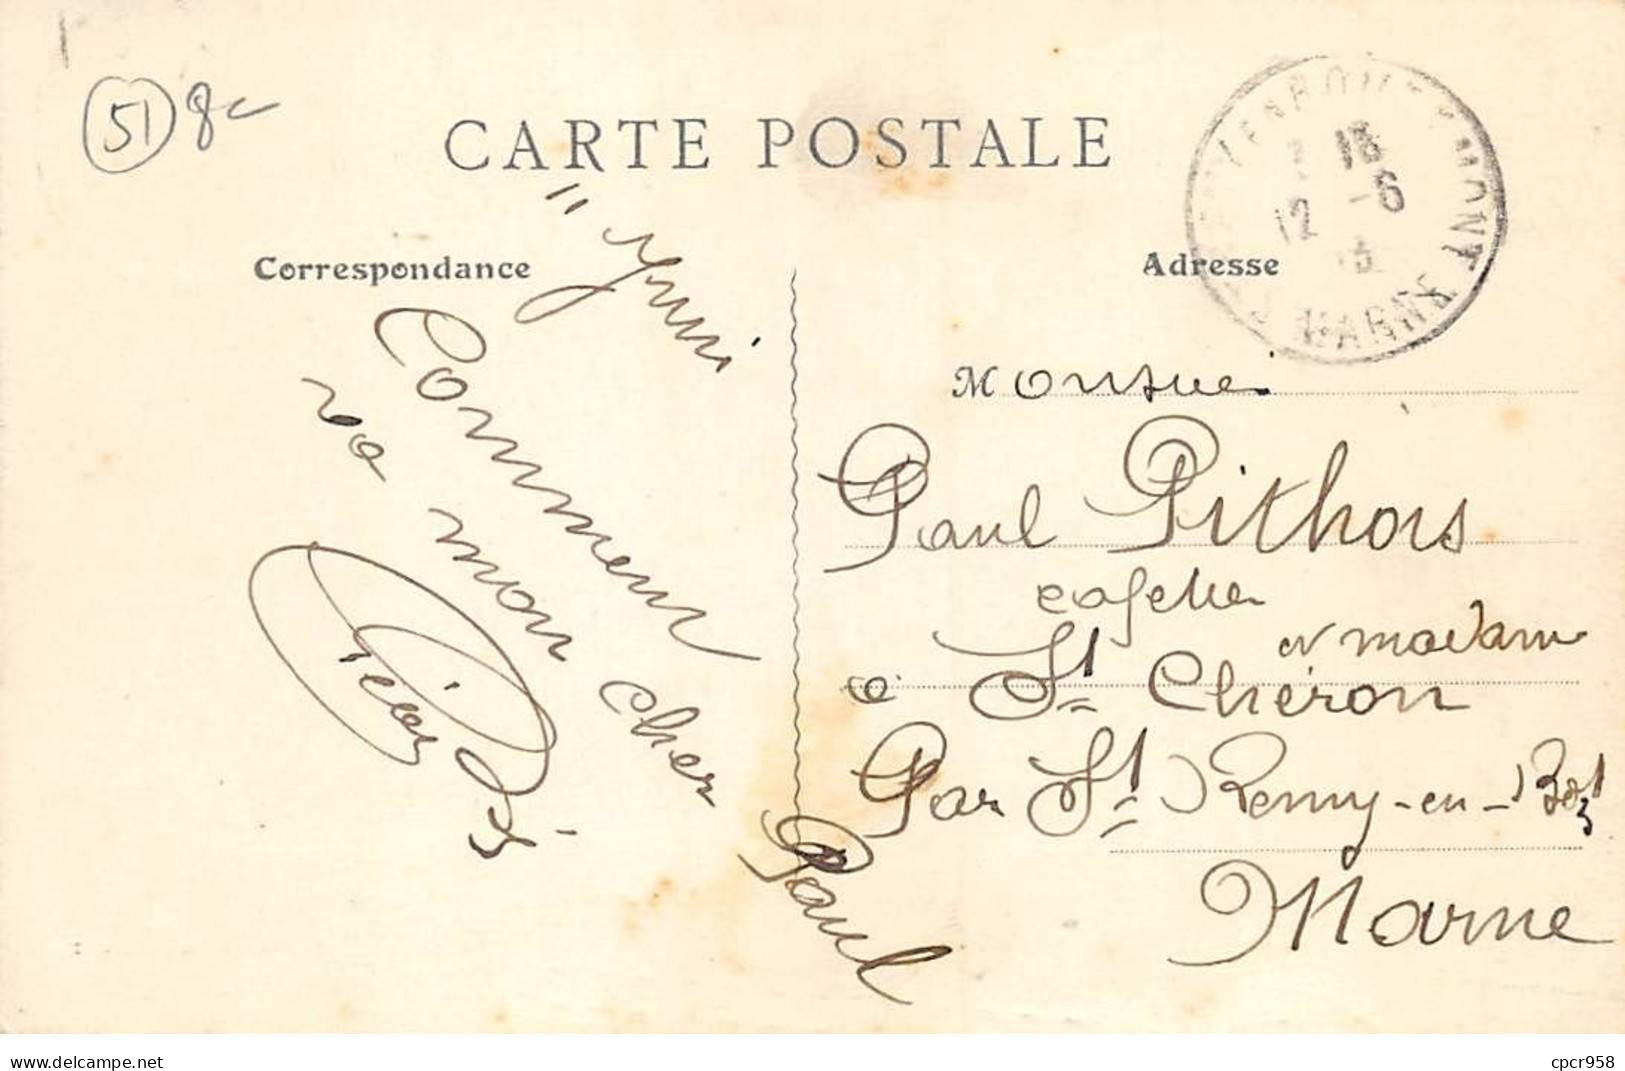 51 8
CARTE POSTALE
Correspondance
Adresse
15
12 -6
MARNE
11 Juin
Commen
va mon cher
Paul
Monsieu
Paul Pithois
cafetier
et madame
à St Chéron
Par St Remy-en-Bozt
Marne
delcampe.net
cpcr958